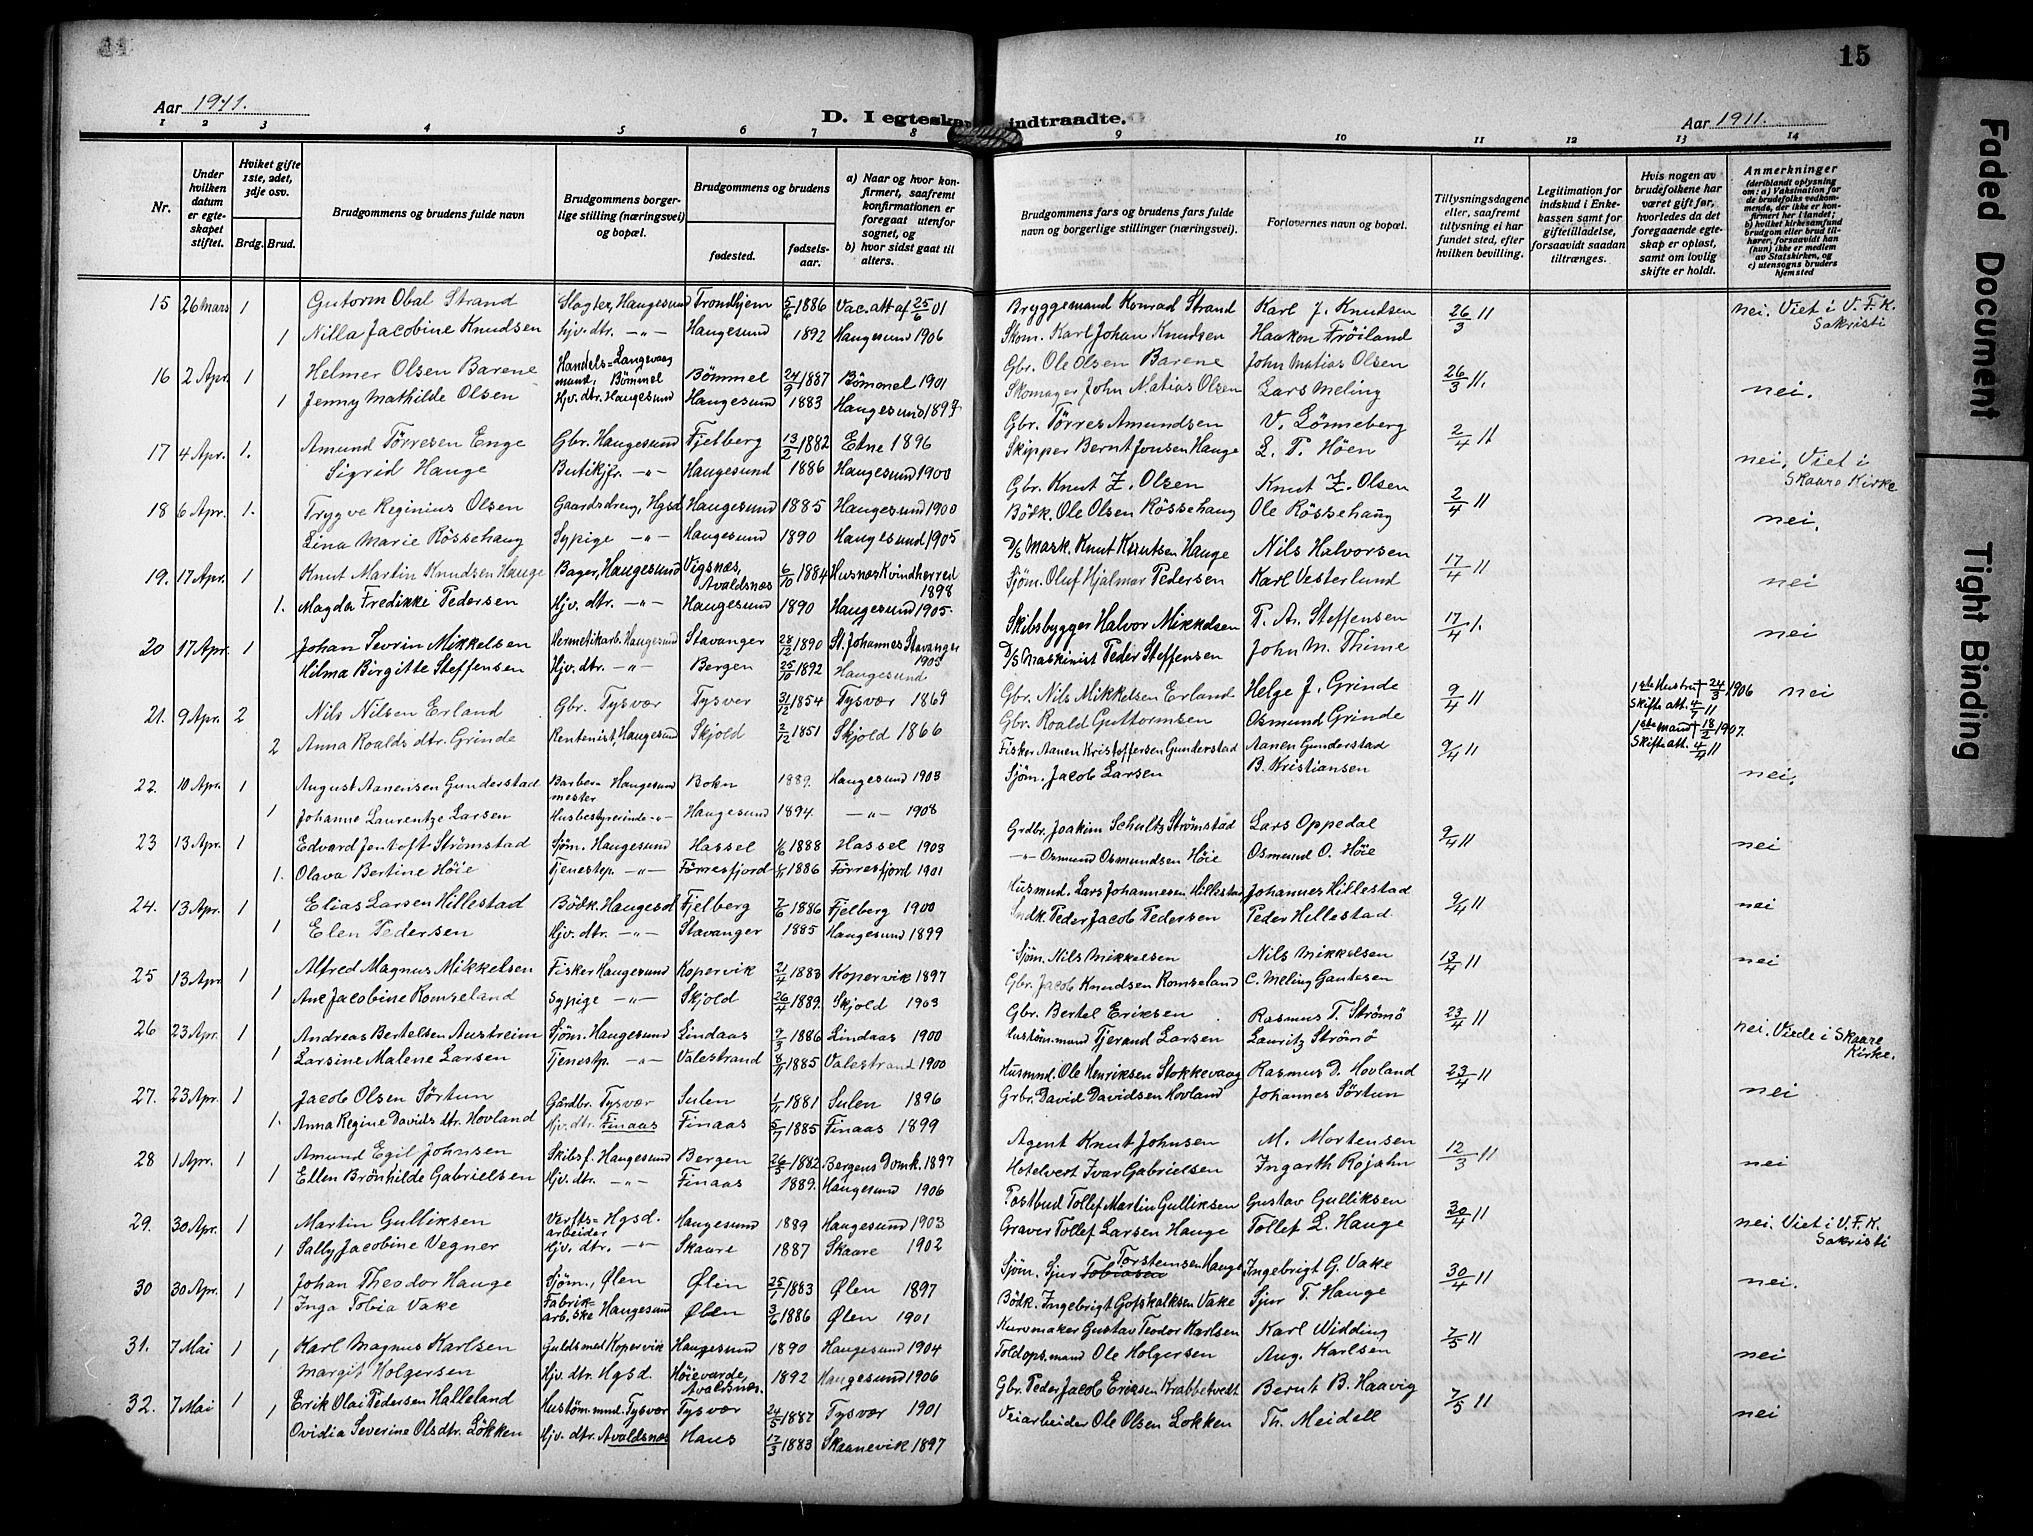 15
Aar 1911.
D. I egteskap indtraadte.
Aar 1911.
1 2 3 4 5 6 7 8 9 10 11 12 13 14
Nr.
Under hvilken datum er egteskapet stiftet.
Hviket gifte 1ste, 2det, 3dje osv.
Brdg. Brud.
Brudgommens og brudens fulde navn
Brudgommens borgerlige stilling (næringsvei) og bopæl.
Brudgommens og brudens
fødested.
fødselsaar.
a) Naar og hvor konfirmert, saafremt konfirmationen er foregaat utenfor sognet, og
b) hvor sidst gaat til alters.
Brudgommens fars og brudens fars fulde navn og borgerlige stillinger (næringsvei).
Forlovernes navn og bopæl.
Tillysningsdagene eller, saafremt tillysning ei har fundet sted, efter hvilken bevilling.
Legitimation for indskud i Enkekassen samt for giftetilladelse, forsaavidt saadan tiltrænges.
Hvis nogen av brudefolkene har været gift før, hvorledes da det foregaaende egteskap er opløst, samt om lovlig skifte er holdt.
Anmerkninger
(deriblandt oplysning om: a) Vaksination for de brudefolks vedkommende, der ikke er konfirmert her i landet; b) hvilket kirkesamfund brudgom eller brud tilhører, forsaavidt han (hun) ikke er medlem av Statskirken, og c) utensogns bruders hjemsted
15 26 Mars 1 Gutorm Obal Strand Slagter, Haugesund Trondhjem 5/6 1886 Vac. att af 25/6 01 Bryggemand Konrad Strand Karl J. Knudsen 26/3 11 nei. Viet i V.F.K. Sakristi
1 Nilla Jacobine Knudsen Hjv. dtr. -"- Haugesund 1892 Haugesund 1906 Skom. Karl Johan Knudsen Haakon Frøiland
16 2 Apr. 1 Helmer Olsen Barene Handelsmand, Langevaag Bømmel Bømmel 24/9 1887 Bømmel 1901 Gbr. Ole Olsen Barene John Matias Olsen 26/3 11. nei.
1 Jenny Mathilde Olsen Hjv. dtr. Haugesund Haugesund 1883 Haugesund 1897 Skomager John Matias Olsen Lars Meling
17 4 Apr. 1. Amund Tørresen Enge Gbr. Haugesund Fjelberg 13/2 1882 Etne 1896 Gbr. Tørres Amundsen V. Lønneberg 2/4 11 nei. Viet i Skaare Kirke
Sigrid Hauge Butikjfr. -"- Haugesund 1886 Haugesund 1900 Skipper Bernt Jonsen Hauge L. T. Høen
18 6 Apr. 1. Trygve Reginius Olsen Gaardsdreng, Hgsd Haugesund 1885 Haugesund 1900 Gbr. Knut Z. Olsen Knut Z. Olsen 2/4 11 nei.
Lina Marie Røssehaug Sypige -"- Haugesund 1890 Haugesund 1905 Bødk. Ole Olsen Røssehaug Ole Røssehaug
19. 17 Apr. 1 Knut Martin Knudsen Hauge Bager, Haugesund Vigsnæs, Avaldsnæs 6/10 1884 Husnæs Kvindherred 1898 D/S Mask. Knut Knutsen Hauge Nils Halvorsen 17/4 11 nei
1. Magda Fredikke Pedersen Hjv. dtr. -"- Haugesund 1890 Haugesund 1905. Sjøm. Oluf Hjalmar Pedersen Karl Vesterlund
20 17 Apr. 1 Johan Sevrin Mikkelsen Hermetikarb. Haugesund Stavanger 28/12 1890 St. Johannes Stavanger 1905 Skibsbygger Halvor Mikkelsen P. A. Steffensen 17/4 1. nei
Hilma Birgitte Steffensen Hjv. dtr. -"- Bergen 25/10 1892 Haugesund D/S Maskinist Peder Steffensen John M. Thime
21. 9 Apr. 2 Nils Nilsen Erland Gbr. Tysvær Tysvær 31/12 1854 Tysvær 1869 Gbr. Nils Mikkelsen Erland Helge J. Grinde 9/4 11 1ste Hustru † 24/3 1906 Skifte att. 4/4 11 nei
2 Anna Roalds dtr. Grinde Rentenist, Haugesund Skjold 2/12 1851 Skjold 1866 Gbr. Roald Guttormsen Osmund Grinde 1ste mand † 18/2 1907. Skifte att. 4/4 11
22. 10 Apr. 1 August Aanensen Gunderstad Barbermester Haugesund Bokn 1889. Haugesund 1903 Fisker Aanen Kristoffersen Gunderstad Aanen Gunderstad 9/4 11 nei.
1 Johanne Laurentze Larsen Husbestyrerinde -"- Haugesund 1894. -"- 1908 Sjøm. Jacob Larsen B. Kristiansen
23 13 Apr. 1 Edvard Jentoft Strømstad Sjøm. Haugesund Hassel 1/6 1888 Hassel 1903 Grdbr. Joakim Schultz Strømstad Lars Oppedal 9/4 11 nei
1. Olava Bertine Høie Tjenestep. -"- Førresfjord 1/11 1886 Førresfjord 1901 -"- Osmund Osmundsen Høie Osmund O. Høie
24. 13 Apr. 1 Elias Larsen Hillestad Bødk. Haugesd Fjelberg 7/6 1886 Fjelberg 1900 Husmnd. Lars Johannesen Hillestad Johannes Hillestad 9/4 11 nei
1 Elen Pedersen Hjv. dtr. -"- Stavanger 1885 Haugesund 1899 Peder Jacob Pedersen Peder Hillestad
25 13 Apr. 1 Alfred Magnus Mikkelsen Fisker Haugesund Kopervik 21/4 1883 Kopervik 1897 Sjøm. Nils Mikkelsen Nils Mikkelsen 13/4 11 nei
1 Ane Jacobine Romseland Sypige -"- Skjold 26/4 1889. Skjold 1903 Gbr. Jacob Knudsen Romseland C. Meling Gautesen
26 23 Apr. 1 Andreas Bertelsen Austreim Sjøm. Haugesund Lindaas 9/3 1886 Lindaas 1900 Gbr. Bertel Eriksen Rasmus T. Strømø 23/4 11 nei. Viede i Skaare Kirke.
1 Larsine Malene Larsen Tjenestp. -"- Valestrand 8/11 1885 Valestrand 1900 Hustøm. mand Tjerand Larsen Lauritz Strømø
27. 23 Apr. 1 Jacob Olsen Sørtun Gårdbr. Tysvær Sulen 1/11 1881 Sulen 1896 Husmnd. Ole Henriksen Stokkevaag Rasmus D. Hovland 23/4 11 nei
1. Anna Regine Davids dtr. Hovland Hjv. dtr. Finaas Finaas 5/7 1885 Finaas 1899 Grbr. David Davidsen Hovland Johannes Sørtun
28 1 Apr. 1 Amund Egil Johnsen Skibsf. Haugesund Bergen 26/5 1882 Bergens Domk. 1897 Agent Knut Johnsen M. Mortensen 12/3 11 nei
1 Ellen Brønhilde Gabrielsen Hjv. dtr. -"- Finaas 1889. Haugesund 1906 Hotelvert Ivar Gabrielsen Ingarth Rojahn
29. 30 Apr. 1 Martin Gulliksen Verftsarbeider Hgsd. Haugesund 1889 Haugesund 1903 Postbud Tollef Martin Gulliksen Gustav Gulliksen 30/4 11 nei. Viet i V.F.K. Sakristi
1 Sally Jacobine Vegner Hjv. dtr. -"- Skaare 1887 Skaare 1902 Graver Tollef Larsen Hauge Tollef L. Hauge
30 30 Apr. 1 Johan Theodor Hauge Sjøm., Ølen Ølen 25/1 1883 Ølen 1897 Sjøm. Sjur Tobiasen Torsteinsen Hauge Ingebrigt G. Vake 30/4 11 nei.
1 Inga Tobia Vake Fabrikarb. ske Haugesund Ølen 3/6 1886 Ølen 1901 Bødk. Ingebrigt Gotskalksen Vake Sjur T. Hauge
31. 7 Mai 1 Karl Magnus Karlsen Guldsmed Kopervik Haugesund 1890 Haugesund 1904 Kurvmaker Gustav Teodor Karlsen Karl Widding 7/5 11 nei
1 Margit Holgersen Hjv. dtr. Hgsd. Høievarde, Avaldsnæs. 1892 Haugesund 1906 Toldops.mand Ole Holgersen Aug. Karlsen
32. 7 Mai 1 Erik Olai Pedersen Halleland Hustøm. mnd. Tysvær Tysvær 24/5 1887 Tysvær 1901 Gbr. Peder Jacob Eriksen Krabbetvedt Bernt B. Haavig 7/5 11 nei
1 Ovidia Severine Olsdtr. Løkken Hjv. dtr. Avaldsnæs Haus 17/3 1883 Skaanevik 1897 Veiarbeider Ole Olsen Løkken Th. Meidell
Faded Document
Tight Binding